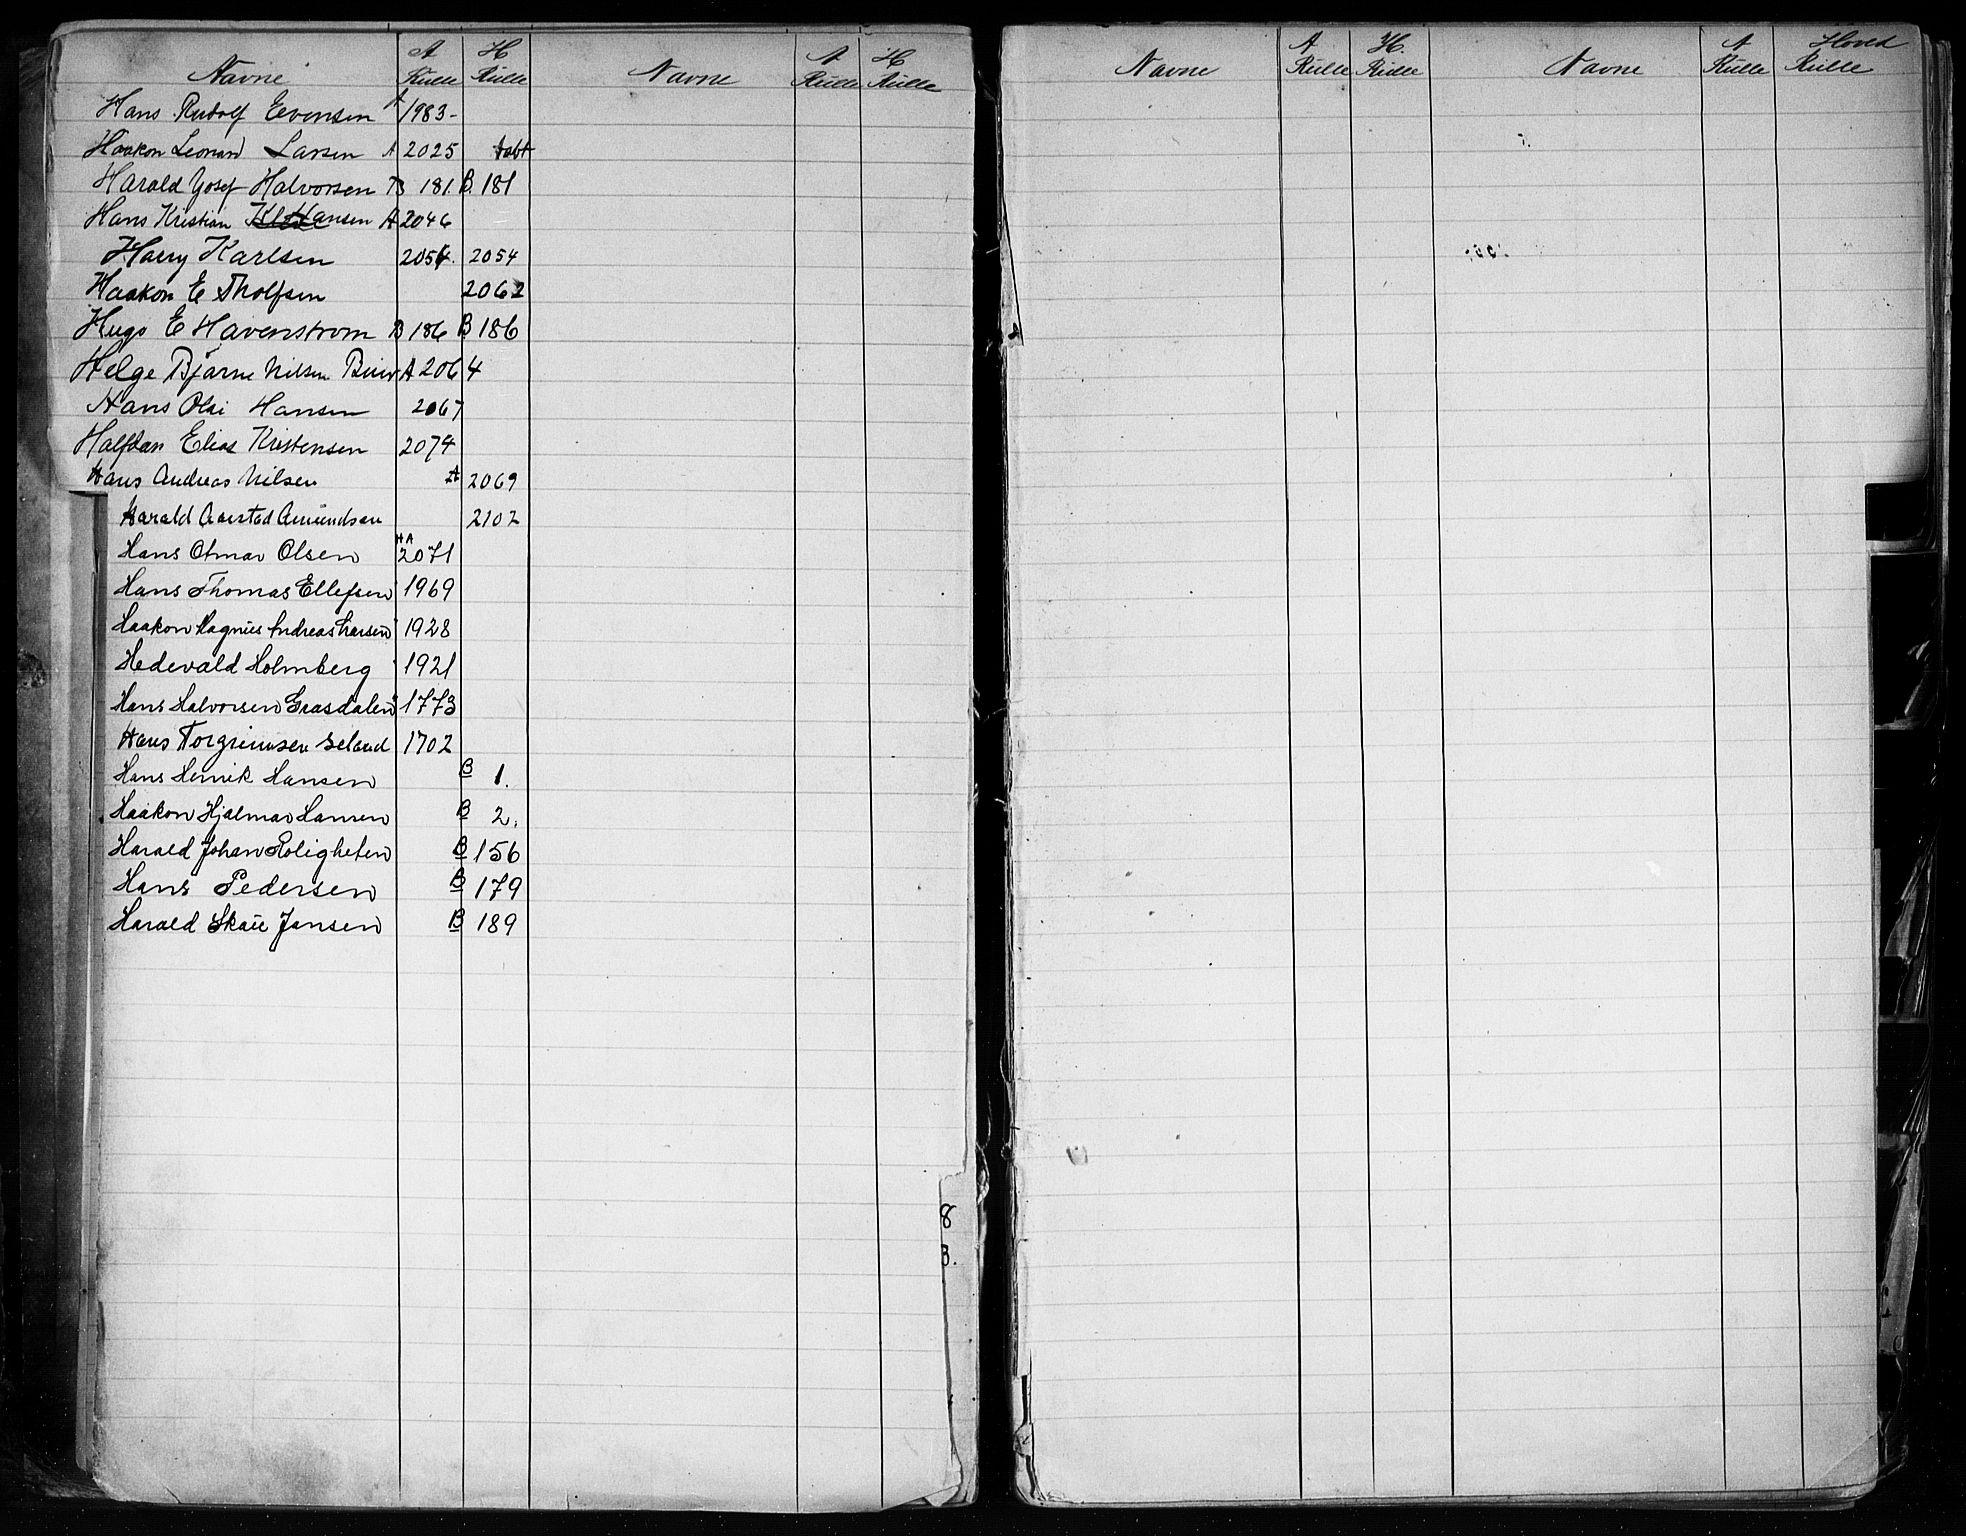 Navne A Rulle H Rulle Navne A Rulle H Rulle
Hans Rudolf Evensen A 1983-
Haakon Leonard Larsen A 2025 tabt
Harald Yosef Halvorsen B 181. B. 181
Hans Kristian Hansen A 2046
Harry Karlsen 2054. 2054
Haakon E Tholfsen 2062
Hugo E Havenstrom B 186 B 186
Helge Bjarne Nilsen A 2064
Hans Olai Hansen 2067
Halfdan Elias Kristensen 2074
Hans Andreas Nilsen A 2069
Harald Aarstad Amundsen 2102
Hans Otmar Olsen HA 2071
Hans Thomas Ellefsen 1969
Haakon Magnus Andreas Larsen 1928
Hedevald Holmberg 1921
Hans Halvorsen Grasdalen 1773
Hans Torgrimsen Seland 1702
Hans Henrik Hansen B 1.
Haakon Hjalmar Hansen B 2.
Harald Johan Roligheten B 156
Hans Pedersen B 179
Harald Skaue Jansen B 189
8
3.
Navne A Rulle H. Rulle Navne A Rulle Hoved Rulle